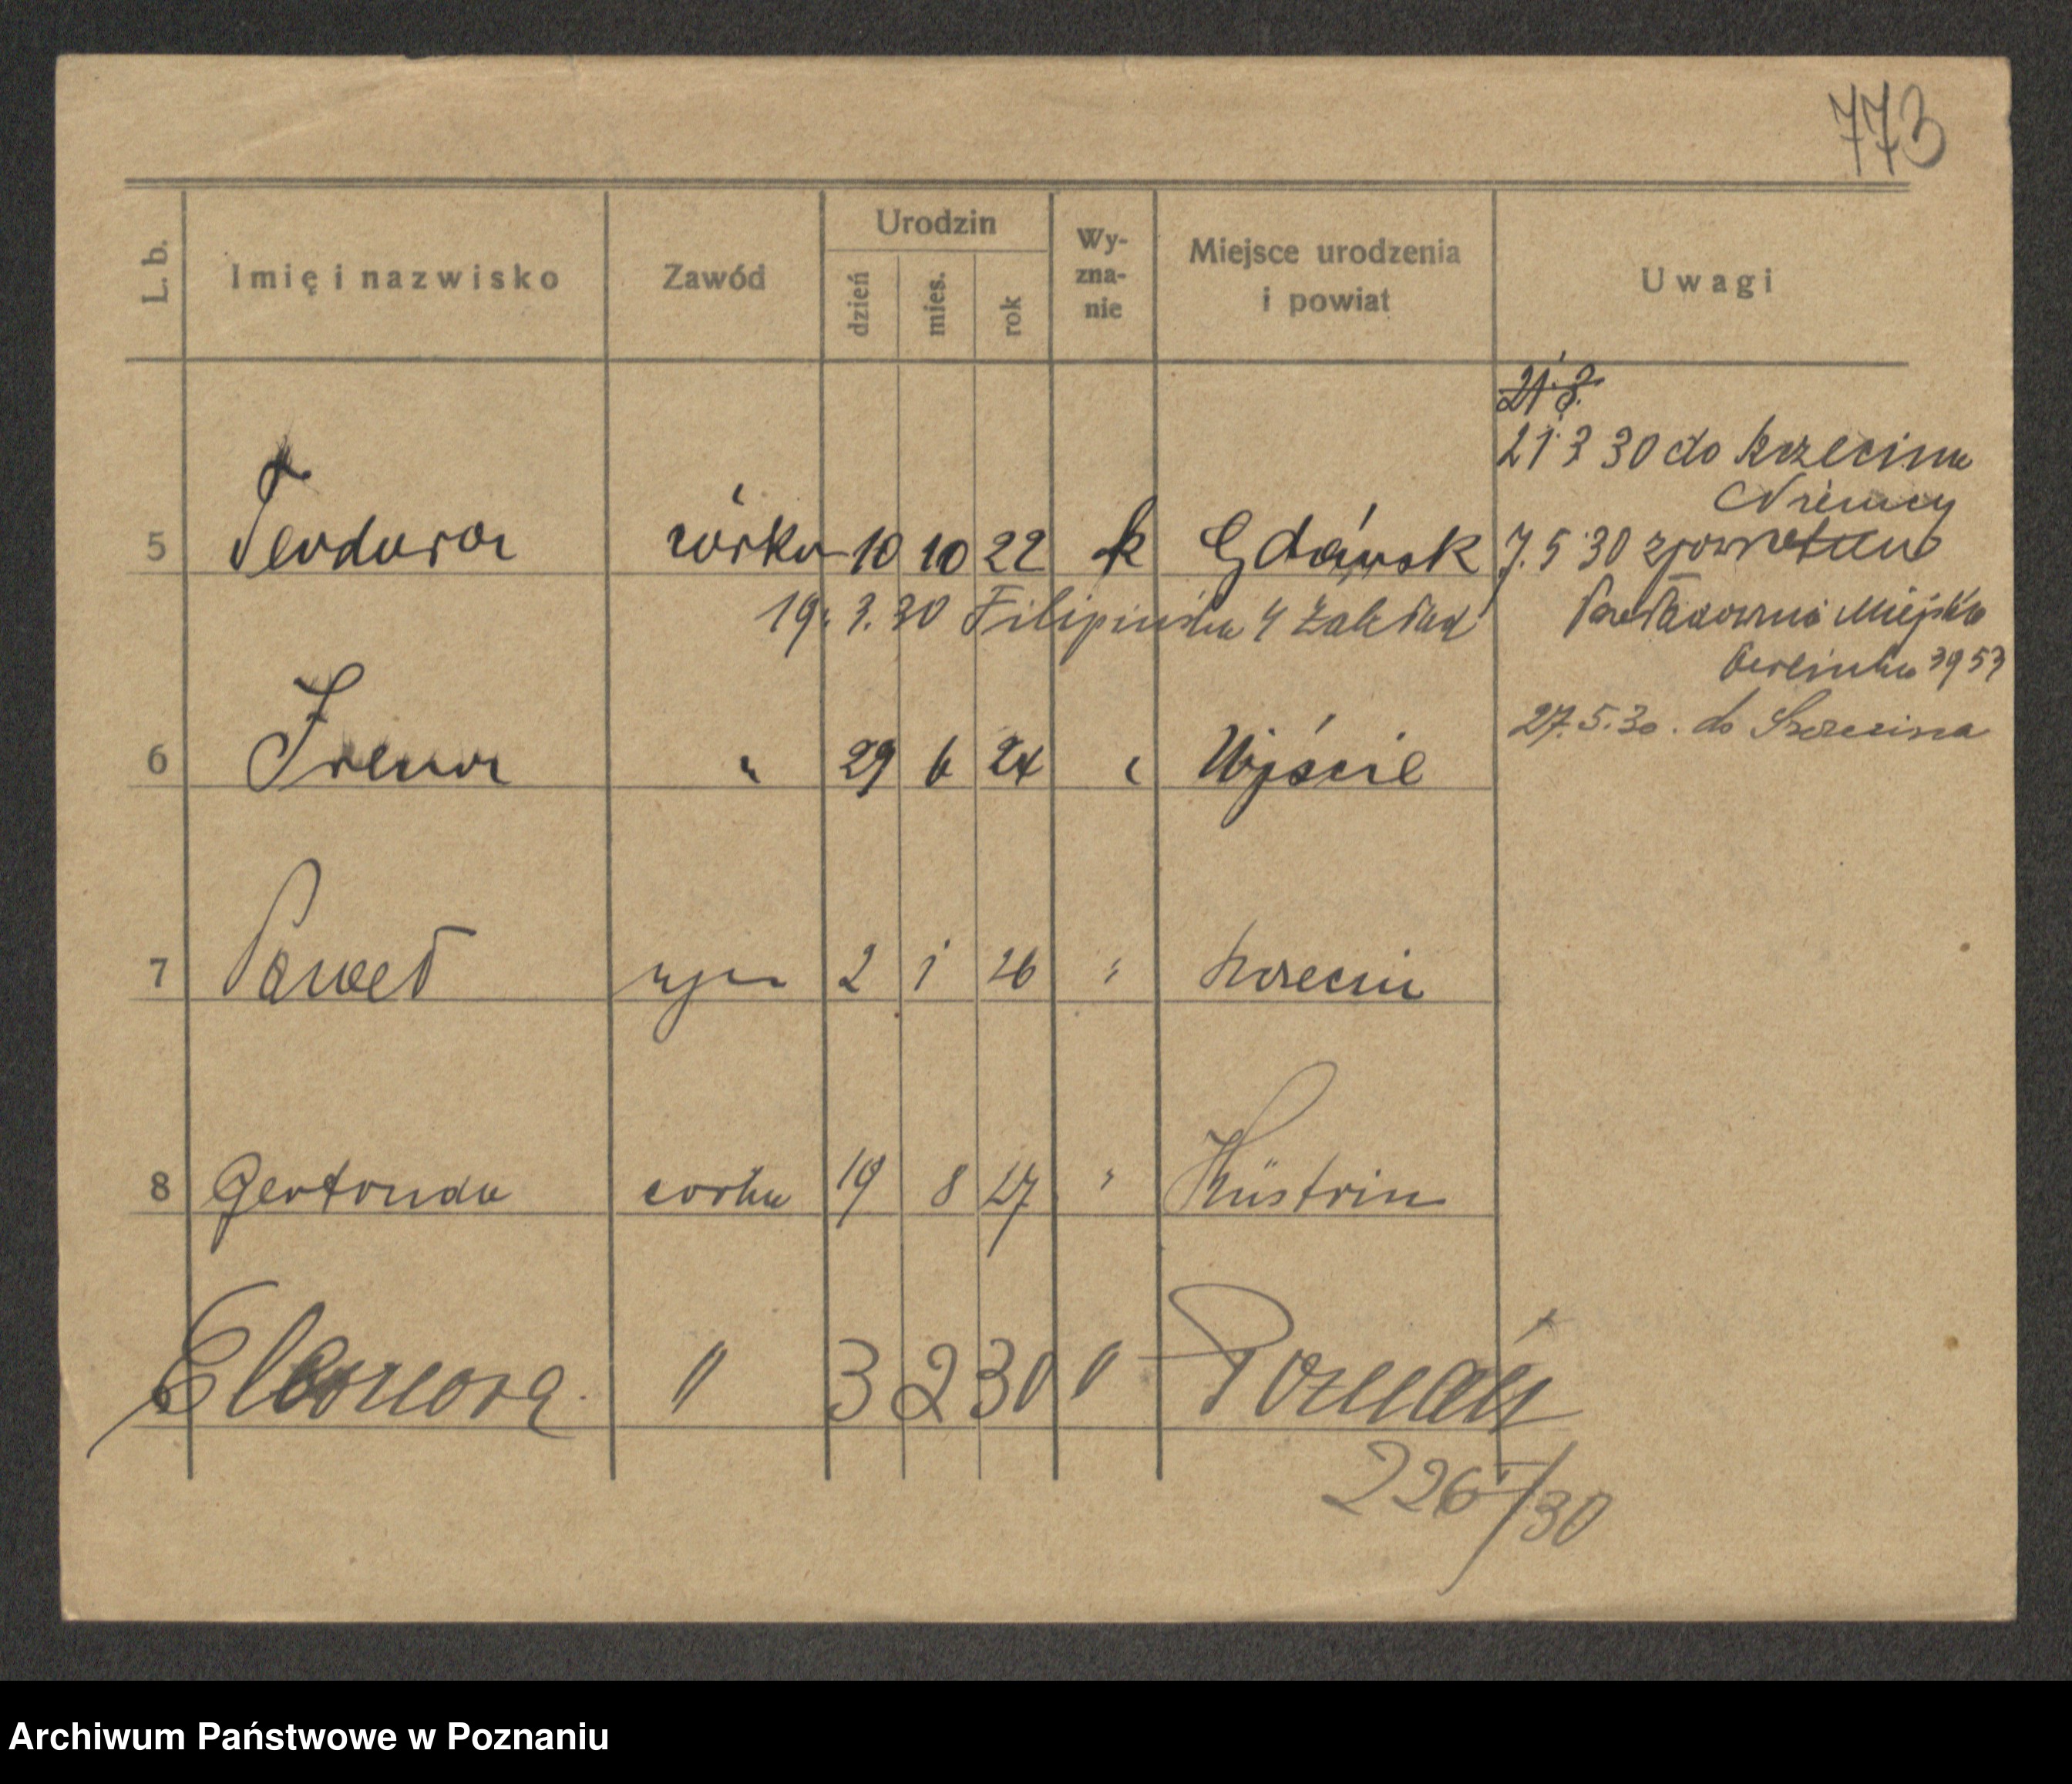 773
L. b.
Imię i nazwisko
Zawód
Urodzin
dzień
mies.
rok
Wy-
zna-
nie
Miejsce urodzenia
i powiat
Uwagi
21.3.
21 3 30 do Szczecina
Niemcy
5 Teodora córka 10 10 22 k Gdańsk 7. 5 30 z powrotem
19. 3. 30 Filipińska 4 Zakład
Miejska
3953
27.5.30. do Szczecina
6 Irena " 29 6 24 " Ujście
7 Paweł syn 2 1 26 " Szczecin
8 Gertruda córka 19 8 27 " Küstrin
Eleonora " 3 2 30 " Poznań
/30
Archiwum Państwowe w Poznaniu